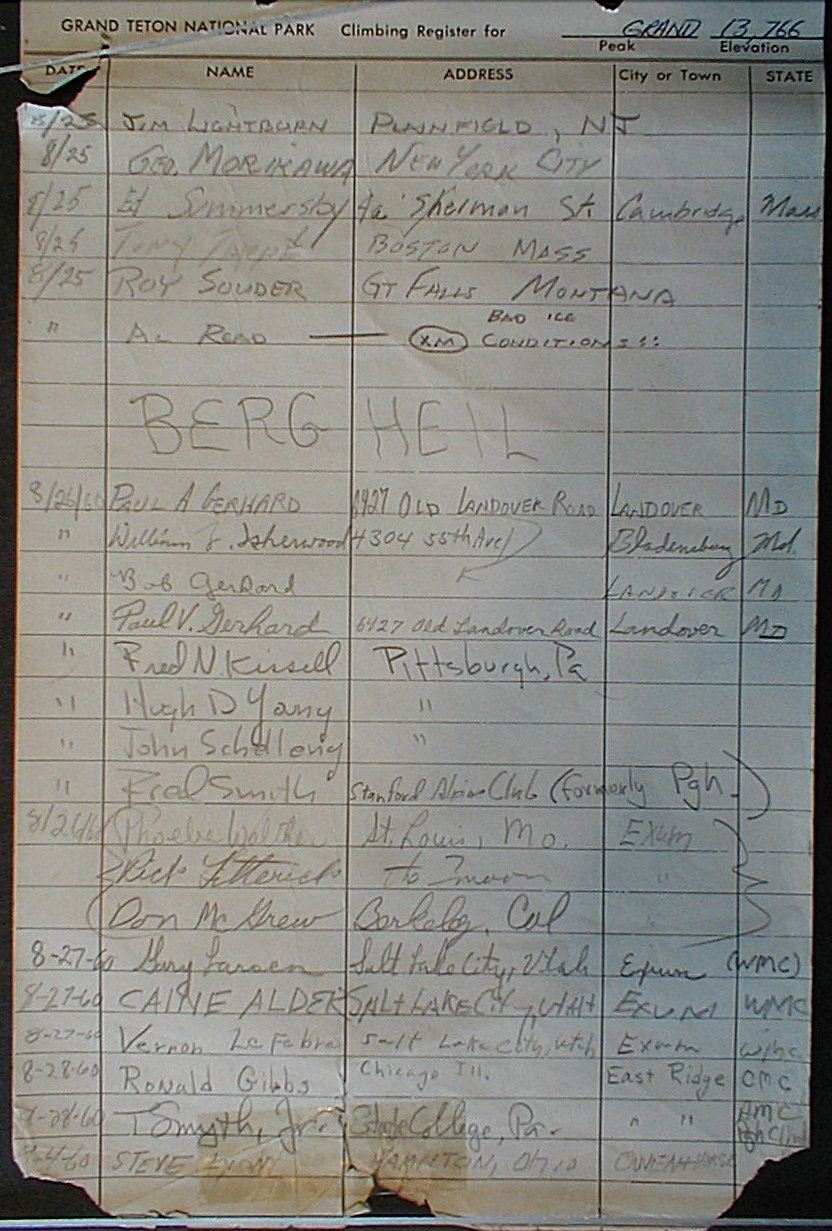 GRAND TETON NATIONAL PARK Climbing Register for GRAND 13,766
Peak Elevation
DATE NAME ADDRESS City or Town STATE
8/25 JIM LIGHTBURN PLAINFIELD, NJ
8/25 GEO. MORIKAWA NEW YORK CITY
8/25 Ed Summersby 4a Sherman St. Cambridge Mass
8/25 TONY BOSTON MASS
8/25 ROY SOUDER GT FALLS MONTANA
BAD ICE
" AL READ — XM CONDITIONS!!
BERG HEIL
8/26/60 PAUL A GERHARD 6427 OLD LANDOVER ROAD LANDOVER MD
" William F. Isherwood 4304 55th Ave Bladensburg Md.
" Bob Gerhard LANDOVER MD
" Paul V. Gerhard 6427 Old Landover Road Landover MD
" Fred N. Kissell Pittsburgh, Pa
" Hugh D Young "
" John Schilleng "
" Fred Smith Stanford Alpine Club (formerly Pgh.)
8/26/60 Phoebe Walther St. Louis, Mo. Exum
Rick "
Don McGrew Berkeley, Cal "
8-27-60 Gary Larsen Salt Lake City, Utah Exum (WMC)
8-27-60 CAINE ALDER SALT LAKE CITY, UTAH EXUM WMC
8-27-60 Vernon LeFabre Salt Lake City, Utah Exum WMC
8-28-60 Ronald Gibbs Chicago Ill. East Ridge CMC
AMC
-28-60 T Smyth, Jr. State College, Pa. " "
-4-60 STEVE LYON HAMILTON, OHIO